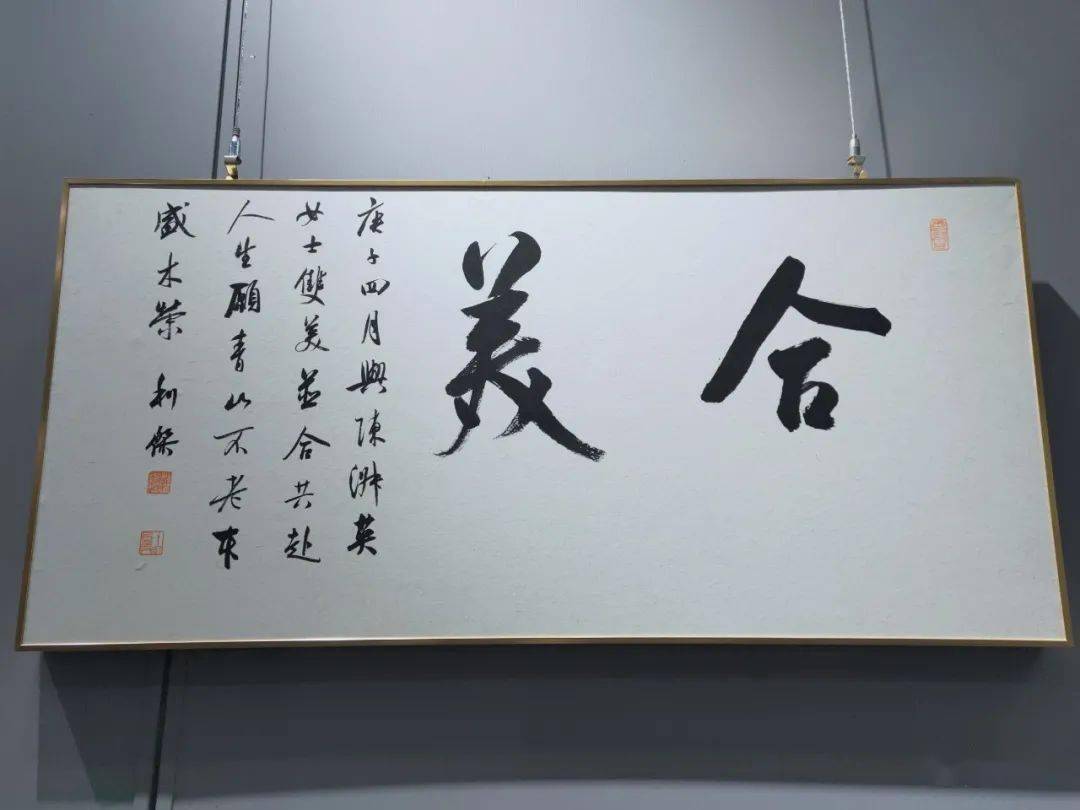 合美
庚子四月與陳英
女士雙美並合共赴
人生願青山不老
盛木榮 利傑